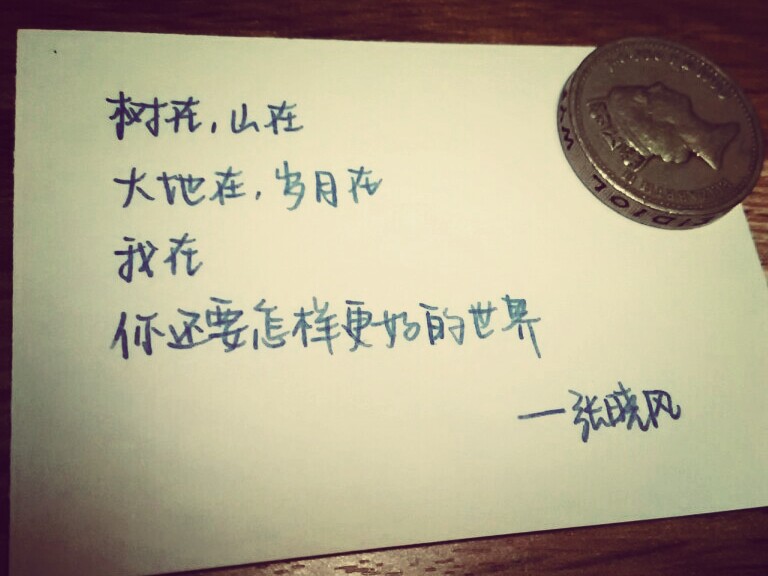 树在,山在
大地在,岁月在
我在
你还要怎样更好的世界
—张晓风